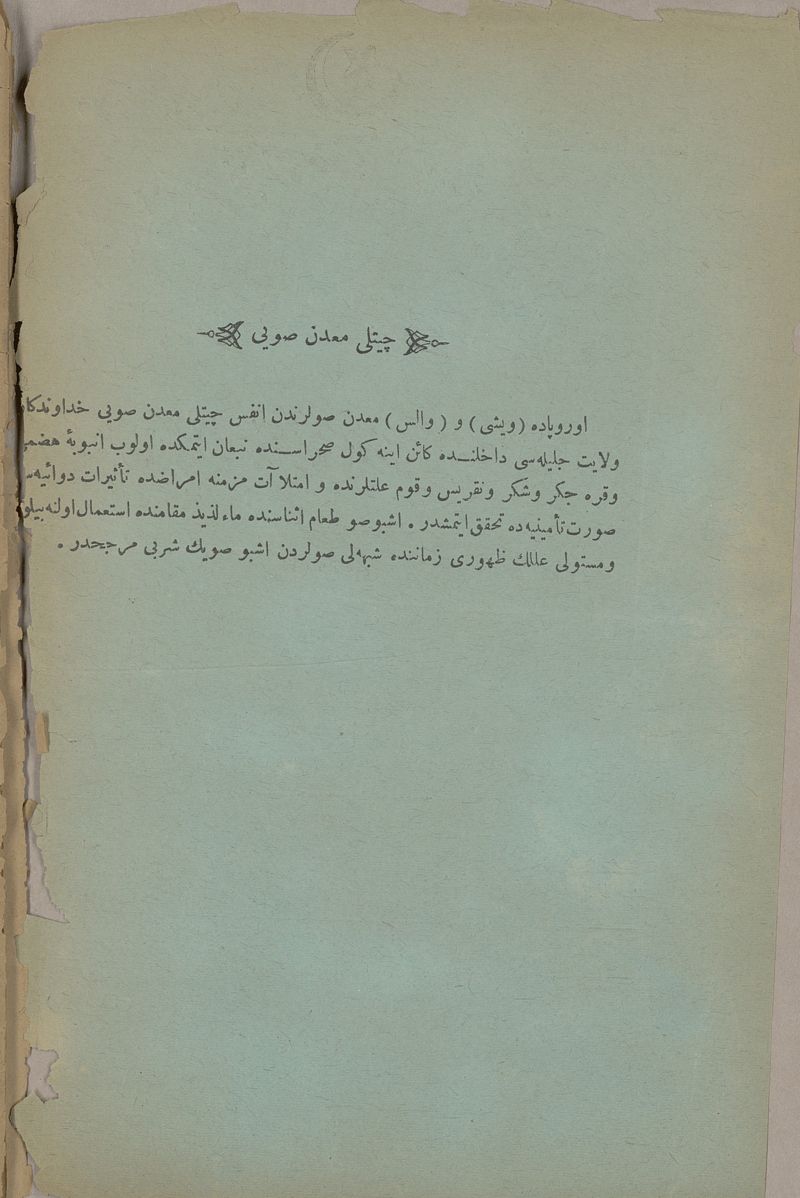 چیتلی معدن صویی
اوروپاده (ویشی) و (والس) معدن صولرندن انفس چیتلی معدن صویی خداوندکار
ولایت جلیله‌سی داخلنــده کائن اینه کول صحراســنده نبعان ایتمکده اولوب انبوبهٔ هضمی
وقره جکر وشکر ونقریس وقوم علتلرنده و امتلاآت مزمنه امراضده تأثیرات دوائیه‌سی
صورت تأمینیه‌ده تحقق ایتمشدر . اشبوصو طعام اثناسنده ماء لذیذ مقامنده استعمال اولنه‌بیلور
ومستولی عللك ظهوری زماننده شبهه‌لی صولردن اشبو صویك شربی مرجحدر .